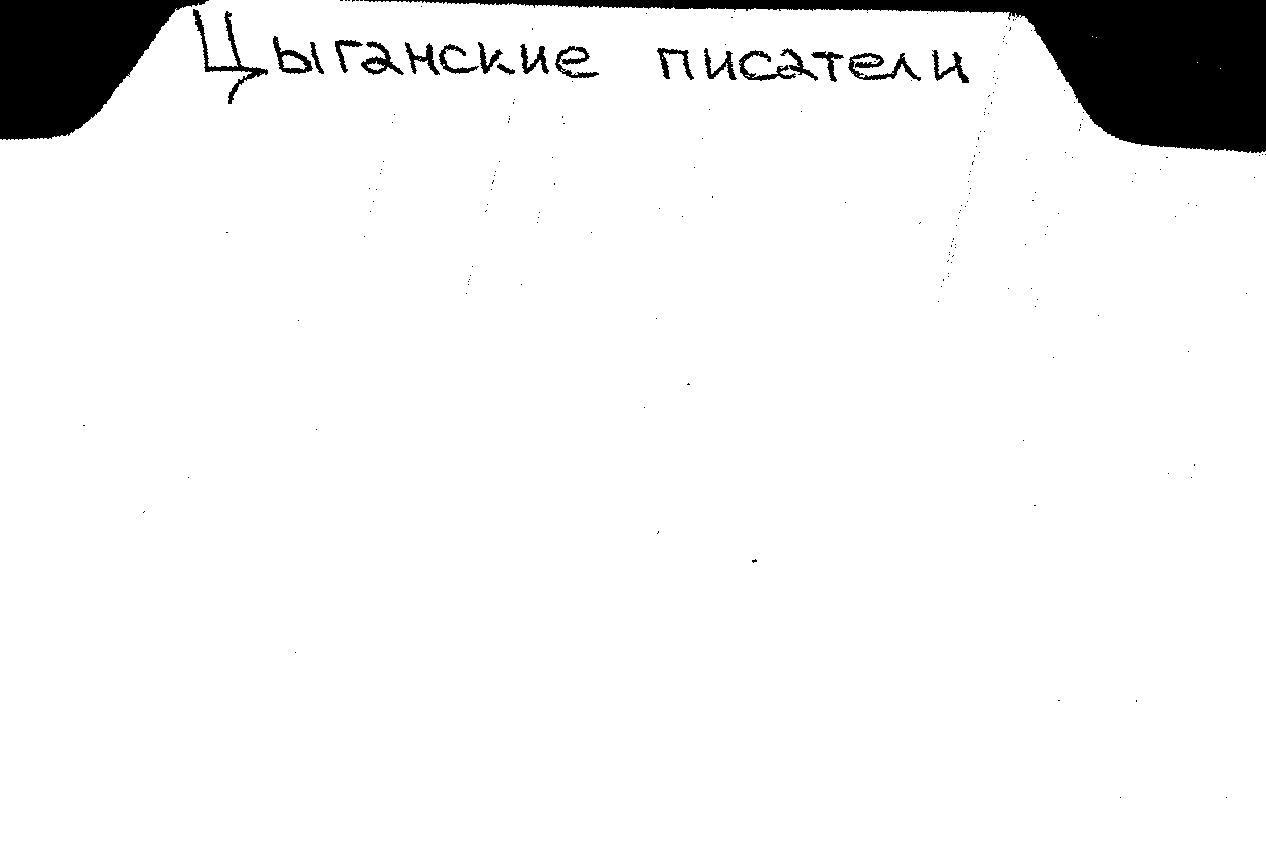 Цыганские писатели